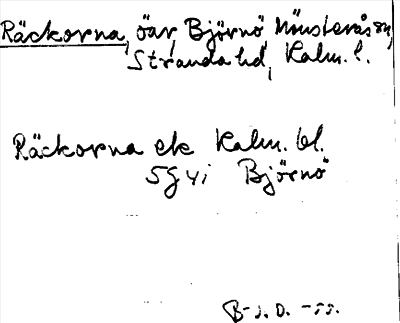 Räckorna, öar, Björnö Mönsterås sn,
Stranda hd, Kalm. l.
Räckorna ek Kalm. bl.
5G4i Björnö
B-J.D. -55.